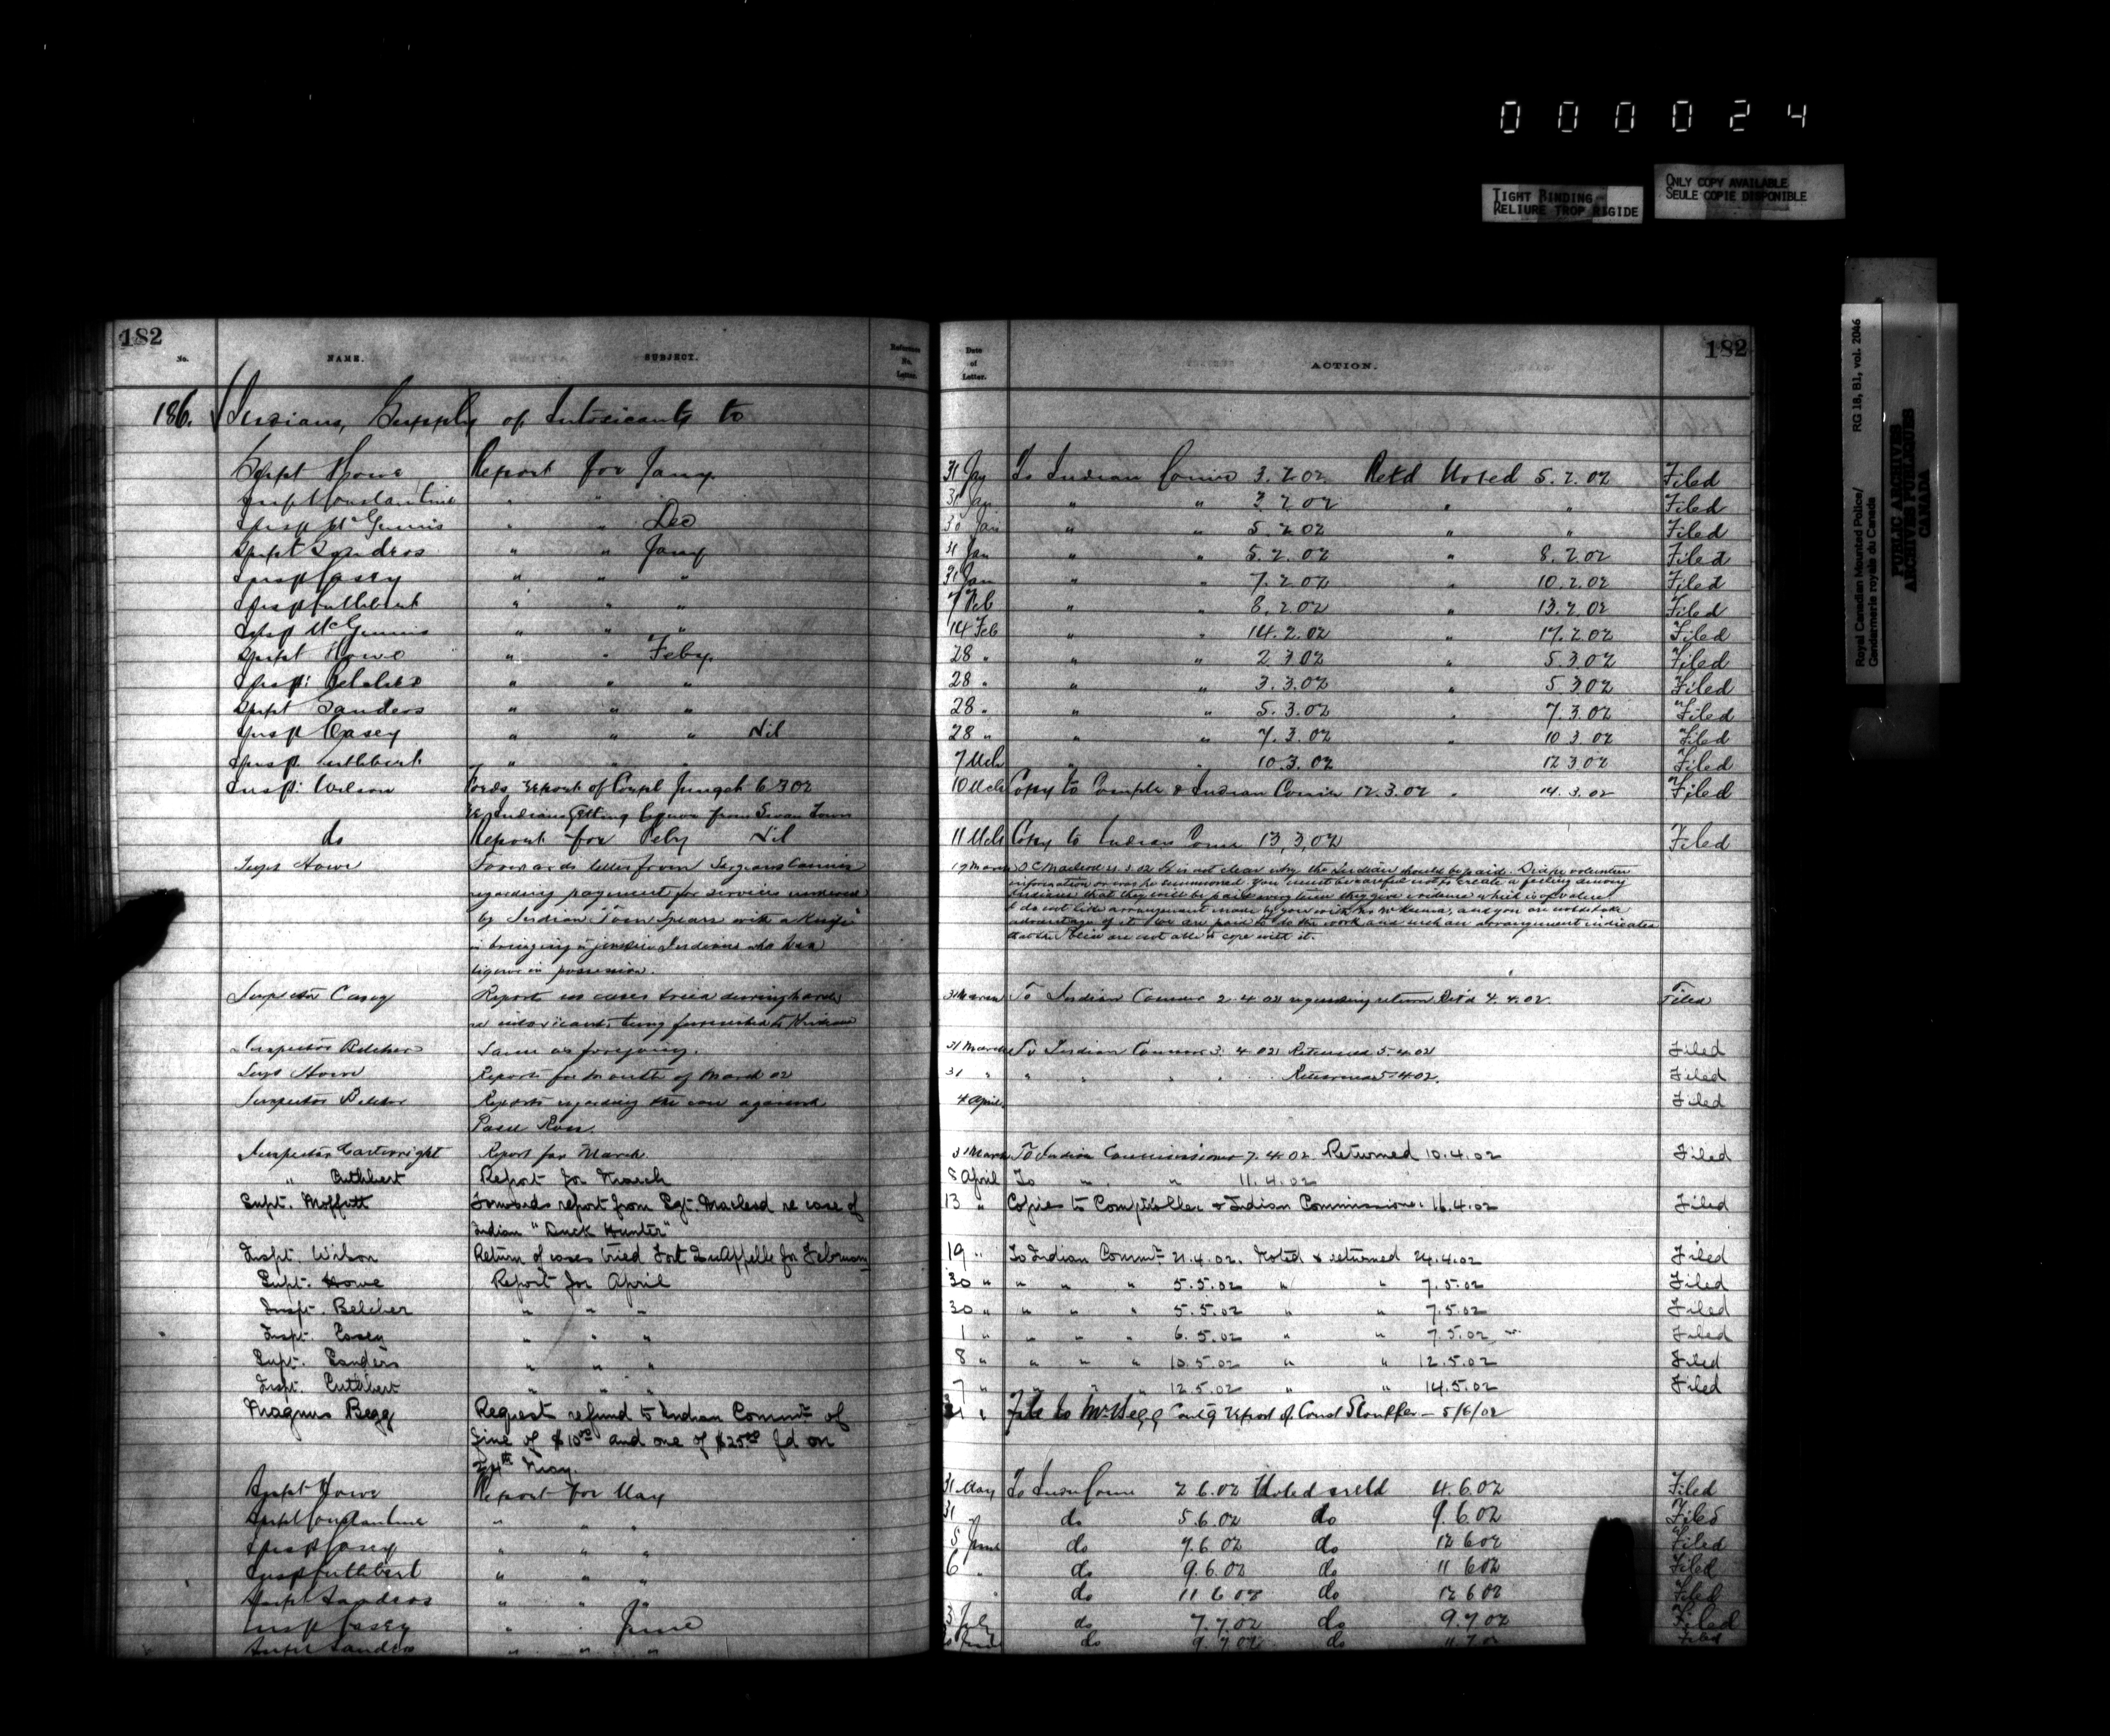 000024
TIGHT BINDING
RELIURE TROP RIGIDE
ONLY COPY AVAILABLE
SEULE COPIE DISPONIBLE
Royal Canadian Mounted Police/ RG 18, B1, vol. 2046
Gendarmerie royale du Canada
PUBLIC ARCHIVES
ARCHIVES PUBLIQUES
CANADA
182 182
No. NAME. SUBJECT. Reference No. Letter. Date of Letter. ACTION.
186. Indians, Supply of Intoxicants to
Supt Howe Report for Jany. 31 Jay To Indian Comr 3.2.02 Retd Noted 5.2.02 Filed
Supt Constantine " " 31 Jan " " 3 2 02 " " Filed
Insp McGinnis " " Dec 30 Jan " " 5.2.02 " " Filed
Supt Sanders " " Jany 31 Jan " " 5.2.02 " 8.2.02 Filed
Insp Casey " " " 31 Jan " " 7.2.02 " 10.2.02 Filed
Insp Cuthbert " " " 7 Feb " " 8.2.02 " 13.2.02 Filed
Insp McGinnis " " " 14 Feb " " 14.2.02 " 17.2.02 Filed
Supt Howe " " Feby. 28 " " " 2 3 02 " 5.3.02 Filed
Insp: Belcher " " " 28 " " " 3.3.02 " 5 3 02 Filed
Supt Sanders " " " 28 " " " 5.3.02 " 7.3.02 Filed
Insp Casey " " " Nil 28 " " " 7.3.02 " 10 3 02 Filed
Insp. Cuthbert " " " 7 Mch " " 10.3.02 12 3 02 Filed
Insp: Wilson Fords report of Corpl Junget 6 3 02 10 Mch Copy to Comptr & Indian Comr 12.3.02 " 14.3.02 Filed
re Indians Getting liquor from Swan Town
do Report for Feby Nil 11 Mch Copy to Indian Comr 13,3,02 Filed
Supt Howe Forwards letter from Indians Comnr 19 March O C Macleod 21.3.02 It is not clear why the Indian should be paid. Did he volunteer
regarding payment for services rendered information or was he summoned. You must be careful not to create a feeling among
by Indian Tom Spears with a Knife Indians that they will be paid every time they give evidence which is of value
in bringing to justice Indians who had I do not like arrangement made by you with Mr McKenna, and you are not to take
liquor in possession. advantage of it. We are paid to do the work and such an arrangement indicates
that the Police are not able to cope with it.
Inspector Casey Report on cases tried during March 31 March To Indian Commr 2.4.02 requesting return Ret'd 4.4.02 Filed
re intoxicants being furnished to Indians
Inspector Belcher Same as foregoing. 31 March To Indian Commr 3.4.02 Returned 5.4.02 Filed
Supt Howe Report for month of March 02 31 " " " " " Returned 5.4.02. Filed
Inspector Belcher Reports regarding the case against 4 April Filed
Paul Ross.
Inspector Cartwright Report for March 31 March To Indian Commissioner 7.4.02 Returned 10.4.02 Filed
" Cuthbert Report for March 8 April To " " 11.4.02
Supt. Moffatt Forwards report from Sgt. Macleod re case of 13 " Copies to Comptroller & Indian Commissioner 16.4.02 Filed
Indian "Duck Hunter"
Inspt. Wilson Return of cases tried Fort Qu'Appelle for February 19 " To Indian Commr 21.4.02. Noted & returned 24.4.02 Filed
Supt. Howe Report for April 30 " " " " 5.5.02 " " 7.5.02 Filed
Inspt. Belcher " " " 30 " " " " 5.5.02 " " 7.5.02 Filed
Inspt. Casey " " " 1 " " " " 6.5.02 " " 7.5.02 Filed
Supt. Sanders " " " 8 " " " " 10.5.02 " " 12.5.02 Filed
Inspt. Cuthbert " " " 7 " " " " 12.5.02 " " 14.5.02 Filed
Magnus Begg Request refund to Indian Commr of 31 " File to Mr Begg Contg report of Const Stauffer - 5/6/02
fine of $10 00 and one of $25 00 fd on
24th May.
Supt Howe Report for May 31 May To Indn Comr 2.6.02 Noted & retd 4.6.02 Filed
Supt Constantine " " " 31 " do 5.6.02 do 9.6.02 Filed
Insp Casey " " " 5 June do 9.6.02 do 12 6 02 Filed
Insp Cuthbert " " " 6 " do 9.6.02 do 11 6 02 Filed
Supt Sanders " " " " do 11 6 02 do 12 6 02 Filed
Insp Casey " " June 3 July do 7.7.02 do 9.7.02 Filed
Supt Sanders " " " do 9.7.02 do Filed